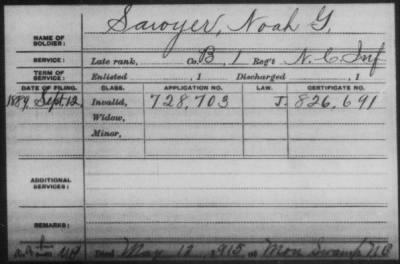 NAME OF SOLDIER: Sawyer, Noah G.
SERVICE: Late rank, Co. B, 1 Reg't N.C. Inf
TERM OF SERVICE: Enlisted , 1 Discharged , 1
DATE OF FILING. CLASS. APPLICATION NO. LAW. CERTIFICATE NO.
1889, Sept. 12 Invalid, 728,703 J. 826,691
Widow,
Minor,
ADDITIONAL SERVICES:
REMARKS:
Died May 12, 1915 at Moss Swamp NC